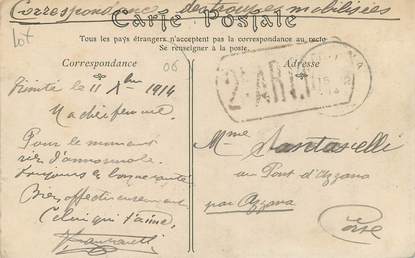 Correspondance des troupes mobilisées
Carte Postale
lot
Tous les pays étrangers n'acceptent pas la correspondance au recto
Se renseigner à la poste.
Correspondance
06
Adresse
le 11 Xbre 1914
Ma chère femme
Pour le moment
rien d'anormal.
Toujours
Bien affectueusement
Celui qui t'aime,
Mme Santarelli
au Pont d'Azzana
par Azzana
Corse